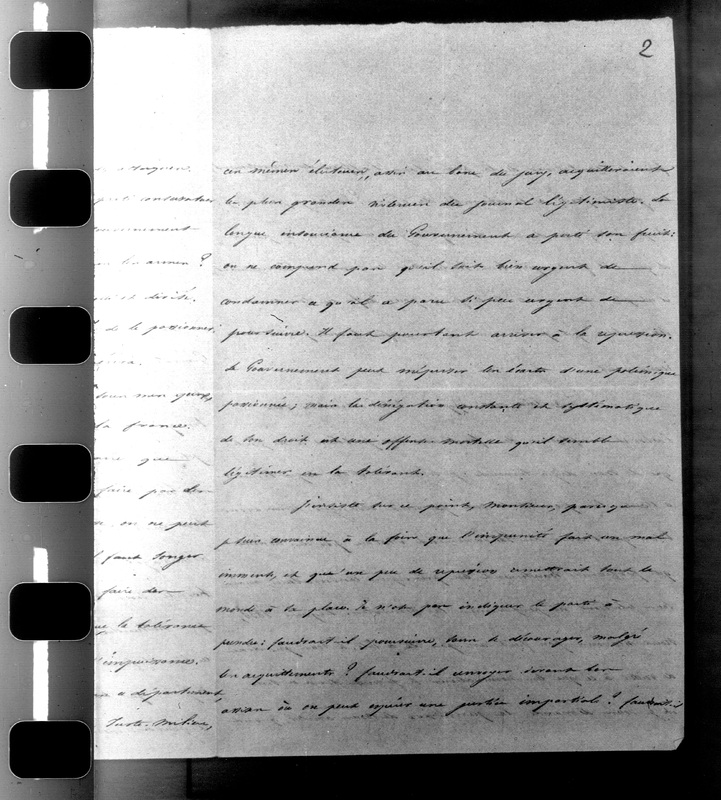 2
ces mêmes électeurs, assis au banc du jury, acquitteraient
les plus grandes violences du journal légitimiste. La
longue insouciance du Gouvernement a porté son fruit:
on ne comprend pas qu'il soit bien urgent de
condamner ce qu'il a paru si peu urgent de
poursuivre. Il faut pourtant arriver à la répression.
Le Gouvernement peut mépriser les écarts d'une polémique
passionnée; mais la dénégation constante et systématique
de son droit est une offense mortelle qu'il semble
légitimer en la tolérant.
J'insiste sur ce point, Monsieur, parceque
je suis convaincu à la fois que l'impunité fait un mal
immense, et qu'un peu de répression remettrait tout le
monde à sa place. Je n'ose pas indiquer le parti à
prendre: faudrait-il poursuivre, sans se décourager, malgré
les acquittements? faudrait-il envoyer devant les
assises où on peut espérer une justice impartiale? faudrait-il
parti conservateur
Gouvernement
les armes?
et droite.
de le passionner
la france.
que
faire par des
on ne peut
faut songer
faire des
que la tolérance
l'impuissance.
ce département,
Juste-Milieu,